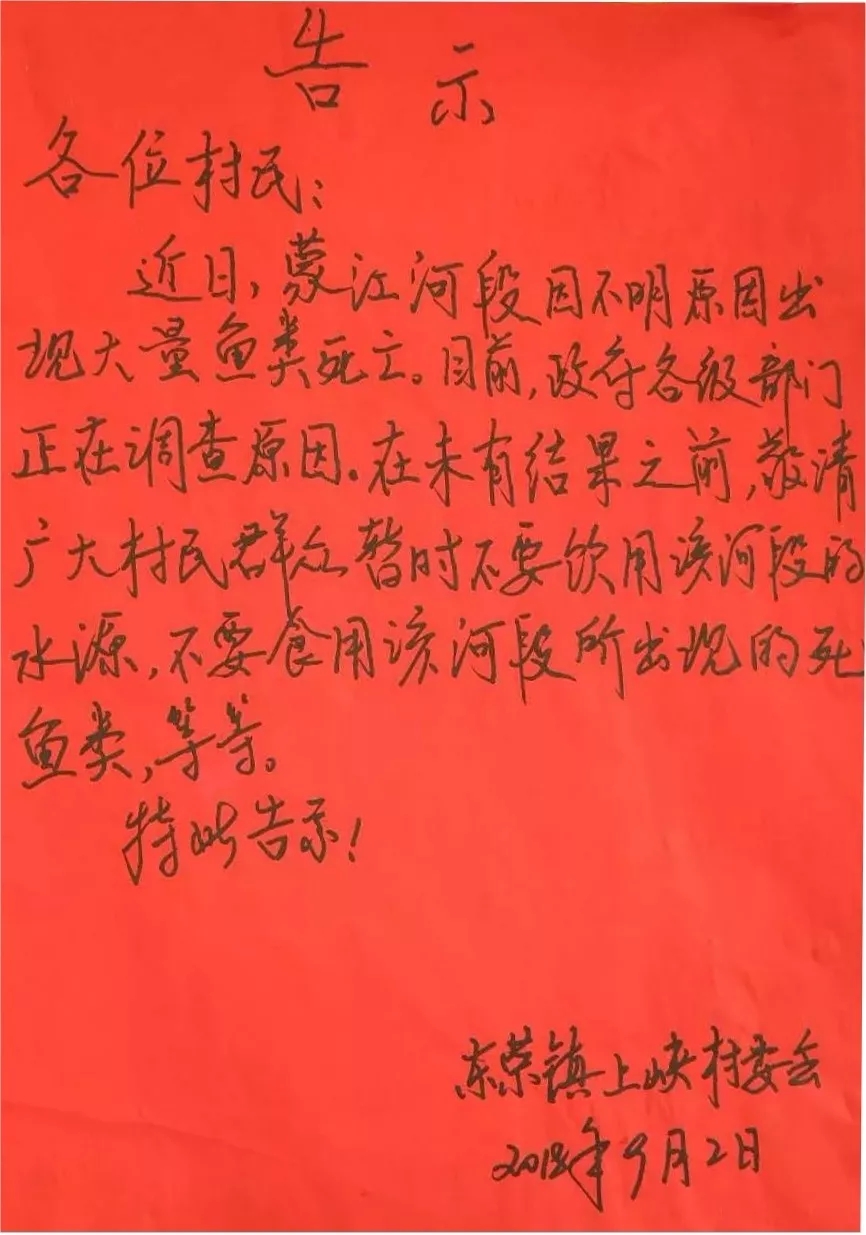 告示
各位村民：
近日，蒙江河段因不明原因出
现大量鱼类死亡。目前，政府各级部门
正在调查原因。在未有结果之前，敬请
广大村民群众暂时不要饮用该河段的
水源，不要食用该河段所出现的死
鱼类，等等。
特此告示！
东荣镇上峡村委会
2018年9月2日